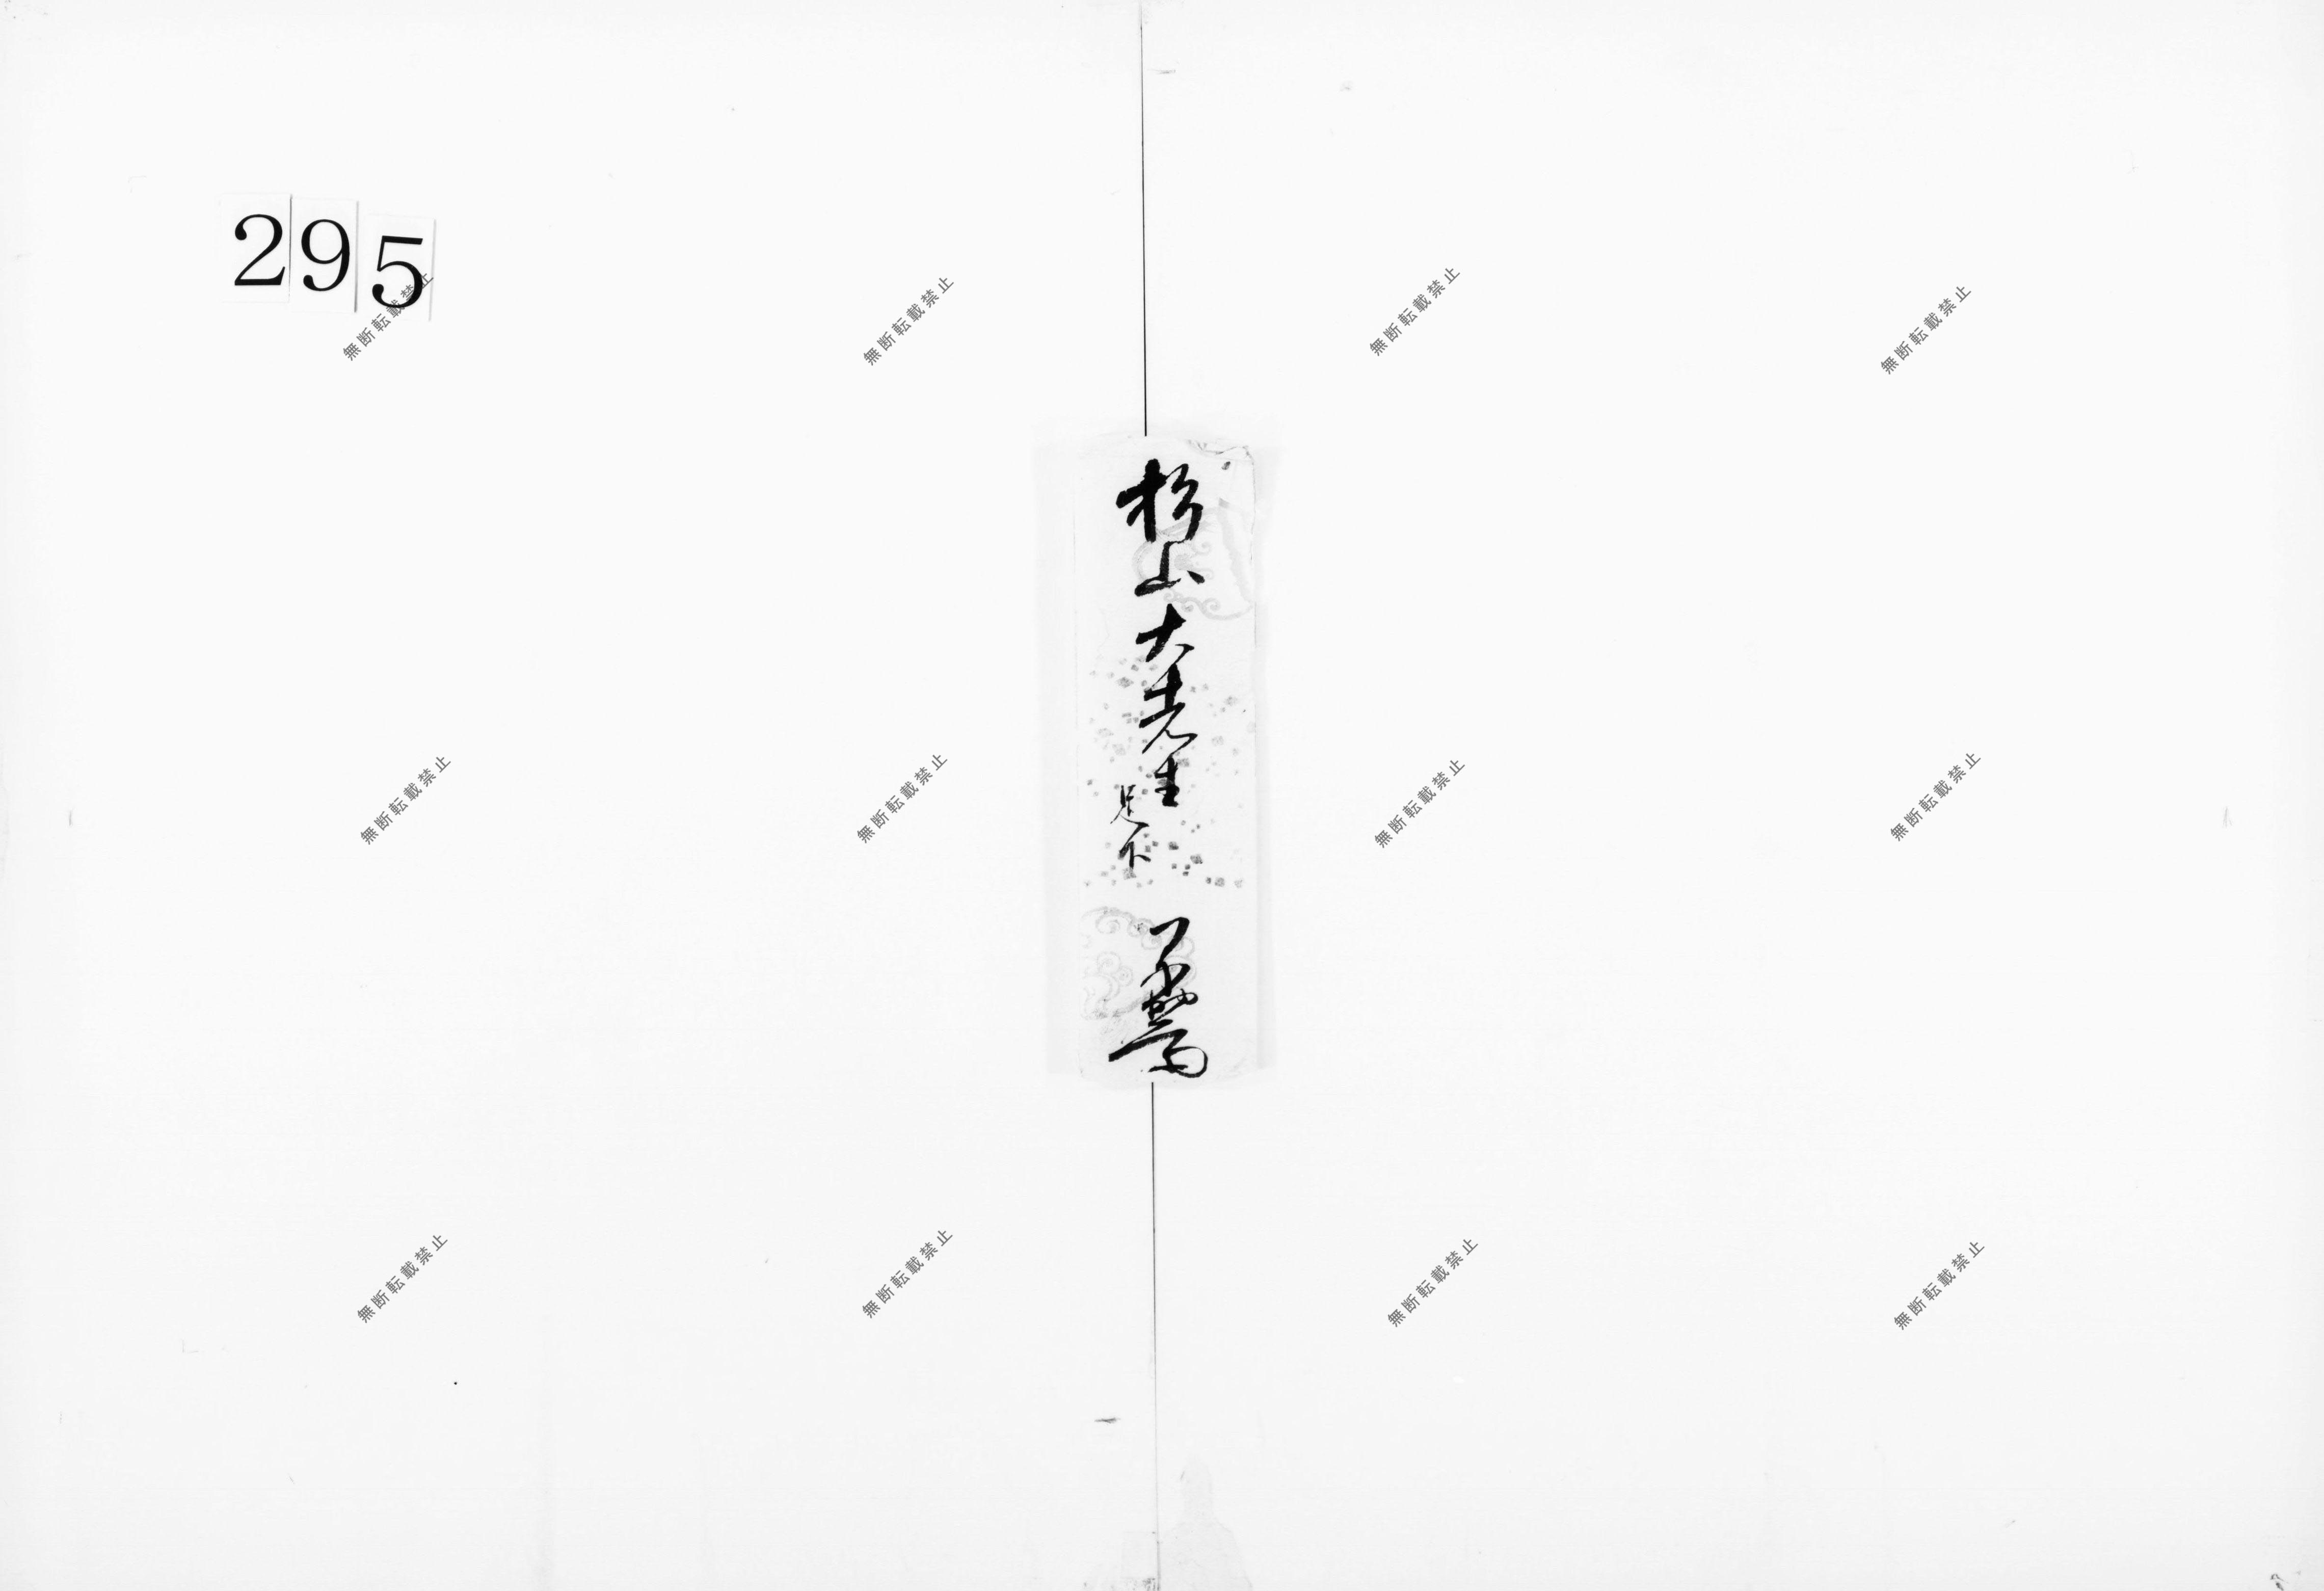 295
杉山大先生
足下
無断転載禁止
無断転載禁止
無断転載禁止
無断転載禁止
無断転載禁止
無断転載禁止
無断転載禁止
無断転載禁止
無断転載禁止
無断転載禁止
無断転載禁止
無断転載禁止